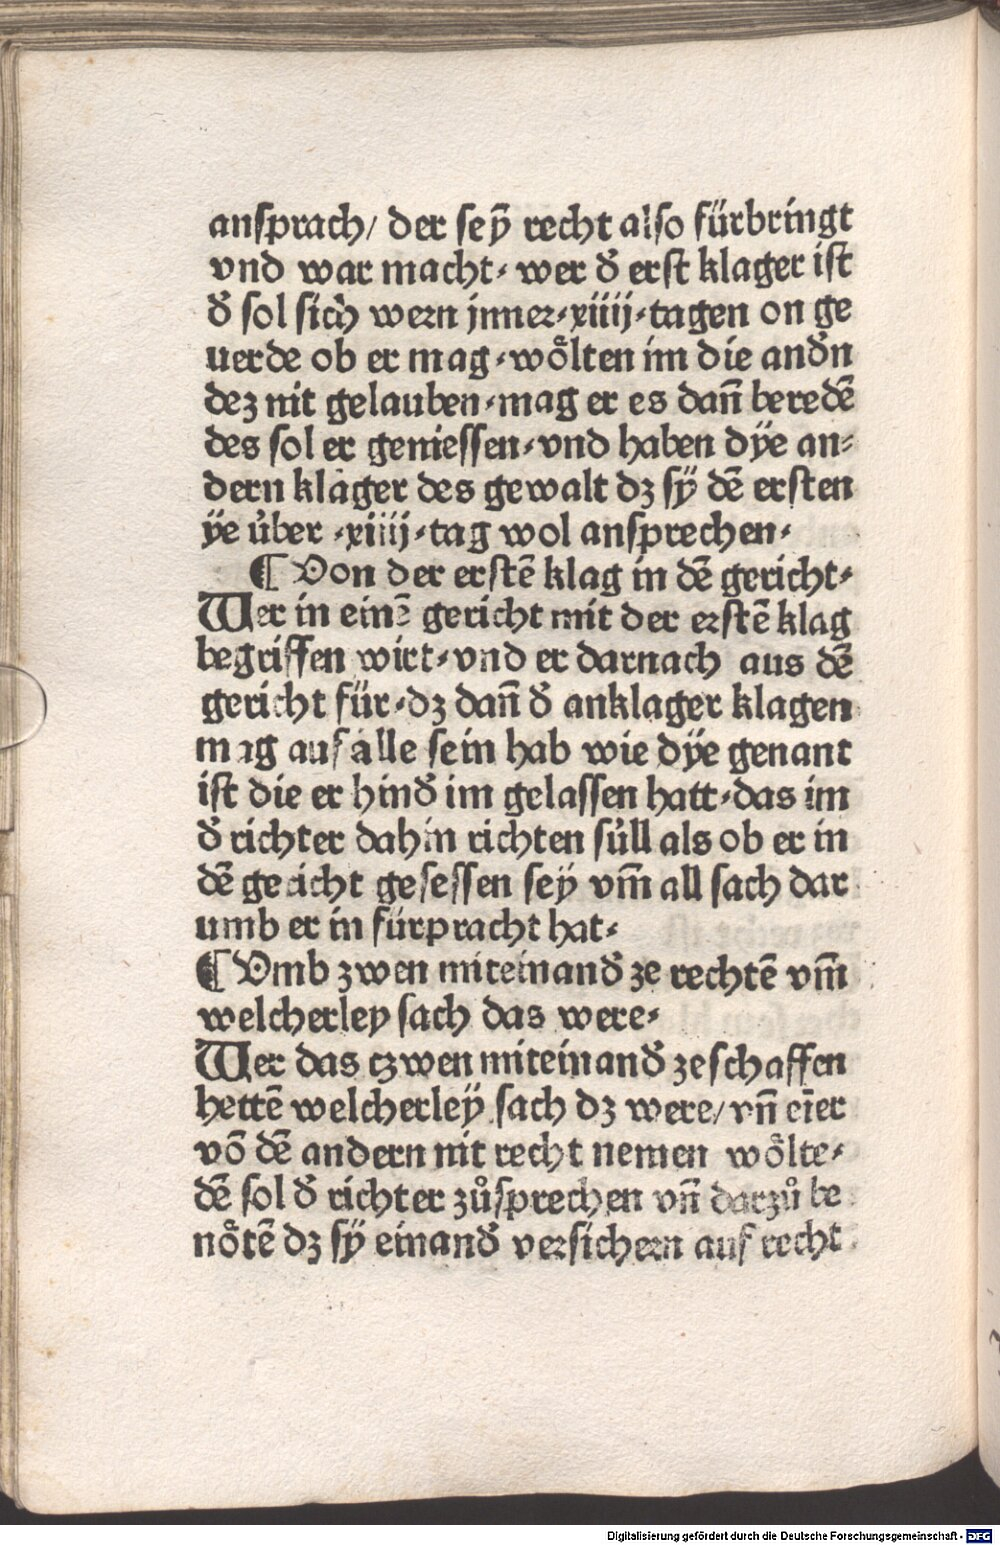 ansprach/ der seÿ recht also fürbringt
vnd war macht· wer d̕ erst klager ist
d̕ sol sich wern jnner·xiiij·tagen on ge
uerde ob er mag·woͤlten im die andn̕
dez nit gelauben·mag er es dañ beredē
des sol er geniessen·vnd haben dÿe an⸗
dern klager des gewalt dz sÿ dē ersten
ÿe uͤber ·xiiij·tag wol ansprechen·
¶ Von der erstē klag in dē gericht·
Wer in einē gericht mit der erstē klag
begriffen wirt·vnd er darnach aus dē
gericht für·dz dañ d̕ anklager klagen
mag auf alle sein hab wie dÿe genant
ist die er hind̕ im gelassen hatt·das im
d̕ richter dahin richten süll als ob er in
dē gericht gesessen sey vm̄ all sach dar
umb er in fürpracht hat·
¶ Vmb zwen miteinand̕ ze rechtē vm̄
welcherley sach das were·
Wer das tzwen miteinand̕ zeschaffen
hettē welcherleÿ sach dz were/ vñ eīer
vō dē andern nit recht nemen woͤlte·
dē sol d̕ richter zuͦsprechen vñ darzuͦ be
noͤtē dz sÿ einand̕ versichern auf recht
Digitalisierung gefördert durch die Deutsche Forschungsgemeinschaft - DFG